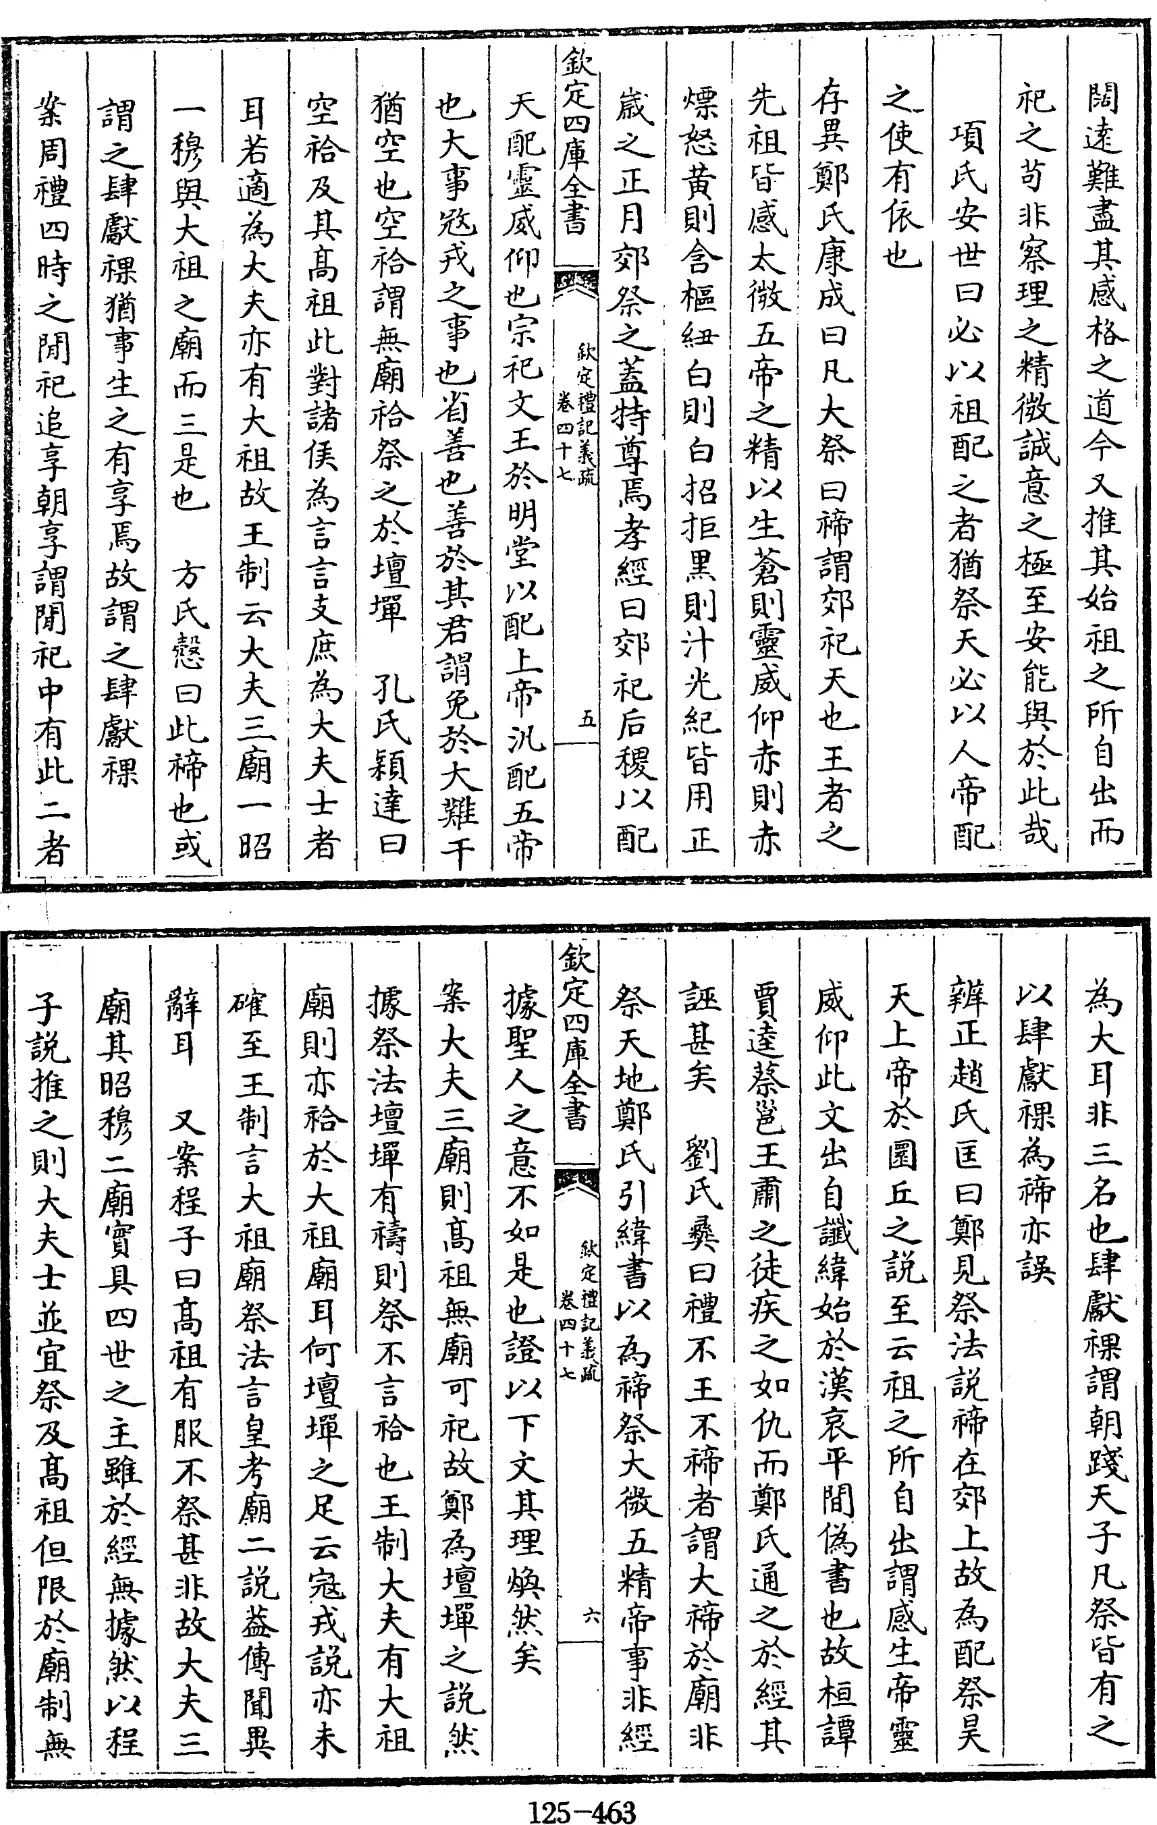 闊遠難盡其感格之道今又推其始祖之所自出而
祀之苟非察理之精微誠意之極至安能與於此哉
項氏安世曰必以祖配之者猶祭天必以人帝配
之使有依也
存異鄭氏康成曰凡大祭曰禘謂郊祀天也王者之
先祖皆感太微五帝之精以生蒼則靈威仰赤則赤
熛怒黄則含樞紐白則白招拒黒則汁光紀皆用正
嵗之正月郊祭之蓋特尊焉孝經曰郊祀后稷以配
欽定四庫全書
欽定禮記義疏
卷四十七
五
天配靈威仰也宗祀文王於明堂以配上帝汎配五帝
也大事冦戎之事也省善也善於其君謂免於大難干
猶空也空祫謂無廟祫祭之於壇墠 孔氏穎達曰
空祫及其髙祖此對諸侯為言言支庶為大夫士者
耳若適為大夫亦有大祖故王制云大夫三廟一昭
一穆與大祖之廟而三是也 方氏慤曰此禘也或
謂之肆獻祼猶事生之有享焉故謂之肆獻祼
案周禮四時之間祀追享朝享謂間祀中有此二者
為大耳非三名也肆獻祼謂朝踐天子凡祭皆有之
以肆獻祼為禘亦誤
辨正趙氏匡曰鄭見祭法説禘在郊上故為配祭昊
天上帝於圜丘之説至云祖之所自出謂感生帝靈
威仰此文出自讖緯始於漢哀平間偽書也故桓譚
賈逵蔡邕王肅之徒疾之如仇而鄭氏通之於經其
誣甚矣 劉氏彛曰禮不王不禘者謂大禘於廟非
祭天地鄭氏引緯書以為禘祭大微五精帝事非經
欽定四庫全書
欽定禮記義疏
卷四十七
六
據聖人之意不如是也證以下文其理煥然矣
案大夫三廟則髙祖無廟可祀故鄭為壇墠之説然
據祭法壇墠有禱則祭不言祫也王制大夫有大祖
廟則亦祫於大祖廟耳何壇墠之足云冦戎説亦未
確至王制言大祖廟祭法言皇考廟二説蓋傳聞異
辭耳 又案程子曰髙祖有服不祭甚非故大夫三
廟其昭穆二廟實具四世之主雖於經無據然以程
子説推之則大夫士並宜祭及髙祖但限於廟制無
125-463